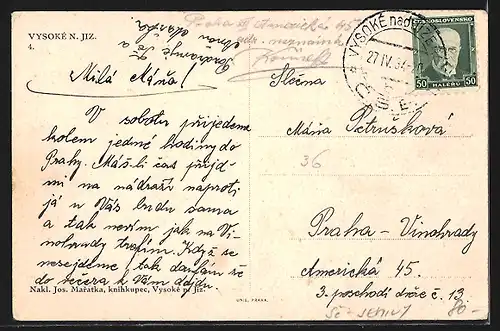 VYSOKÉ N. JIZ.
4.
Milá Máňo!
V sobotu přijedeme
kolem jedné hodiny do
Prahy. Máš-li čas přijď
mi na nádraží naproti
já u Vás budu sama
a tak nevím jak na Vi-
nohrady trefím. Když se
nesejdeme, tak doufám že
do večera k Vám dojdu.
Nakl. Jos. Mařatka, knihkupec, Vysoké n. Jiz.
UNIE, PRAHA.
Praha XII Americká 45
neznámá
VYSOKÉ nad JIZEROU
27.IV.34
ČESKOSLOVENSKO
50 HALÉŘŮ 50
Slečna
Máňa Petrusková
36
Praha - Vinohrady
Americká 45.
3. poschodí dvěře č. 13.
80-